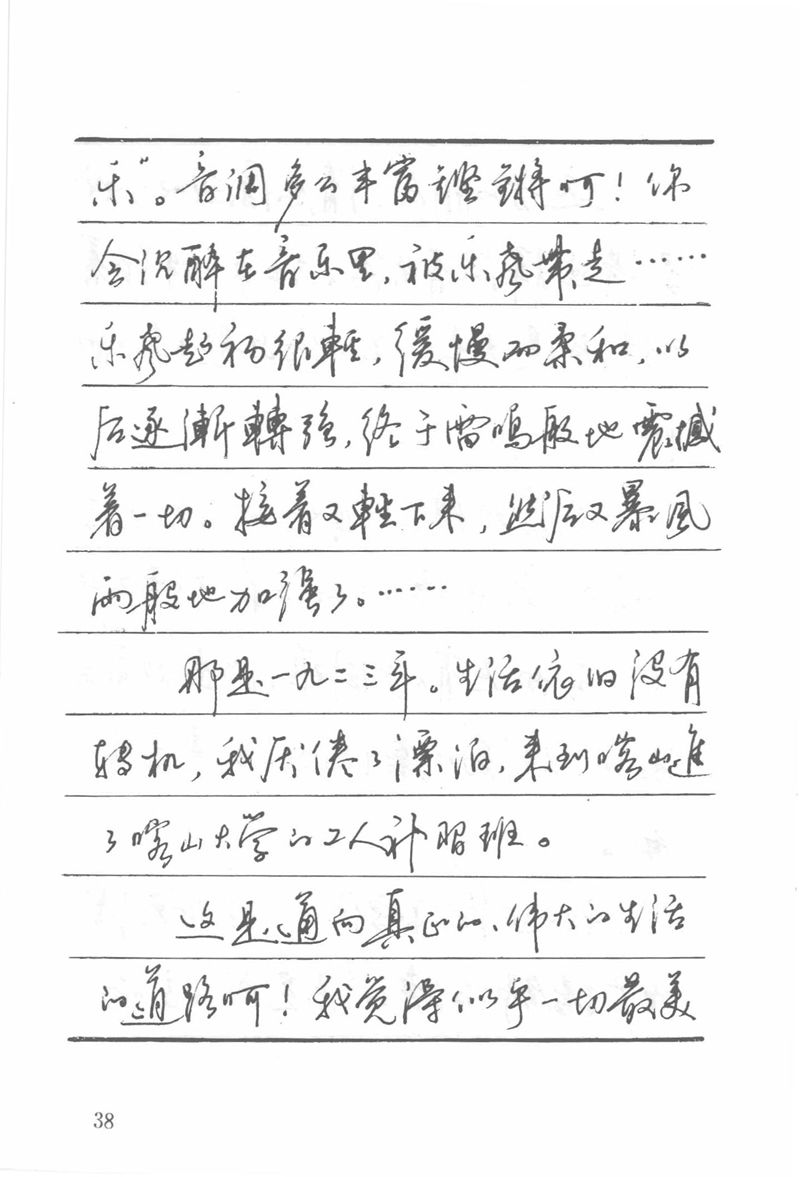 乐”。音调多么丰富铿锵呵！你
会沉醉在音乐里，被乐声带走……
乐声起初很輕，缓慢而柔和，以
后逐漸轉强，终于雷鳴般地震撼
着一切。接着又輕下来，然后又暴風
雨般地加强了。……
那是一九二三年。生活依旧没有
转机，我厌倦了漂泊，来到喀山進
了喀山大学的工人补習班。
这是通向真正的、伟大的生活
的道路呵！我觉得似乎一切最美
38